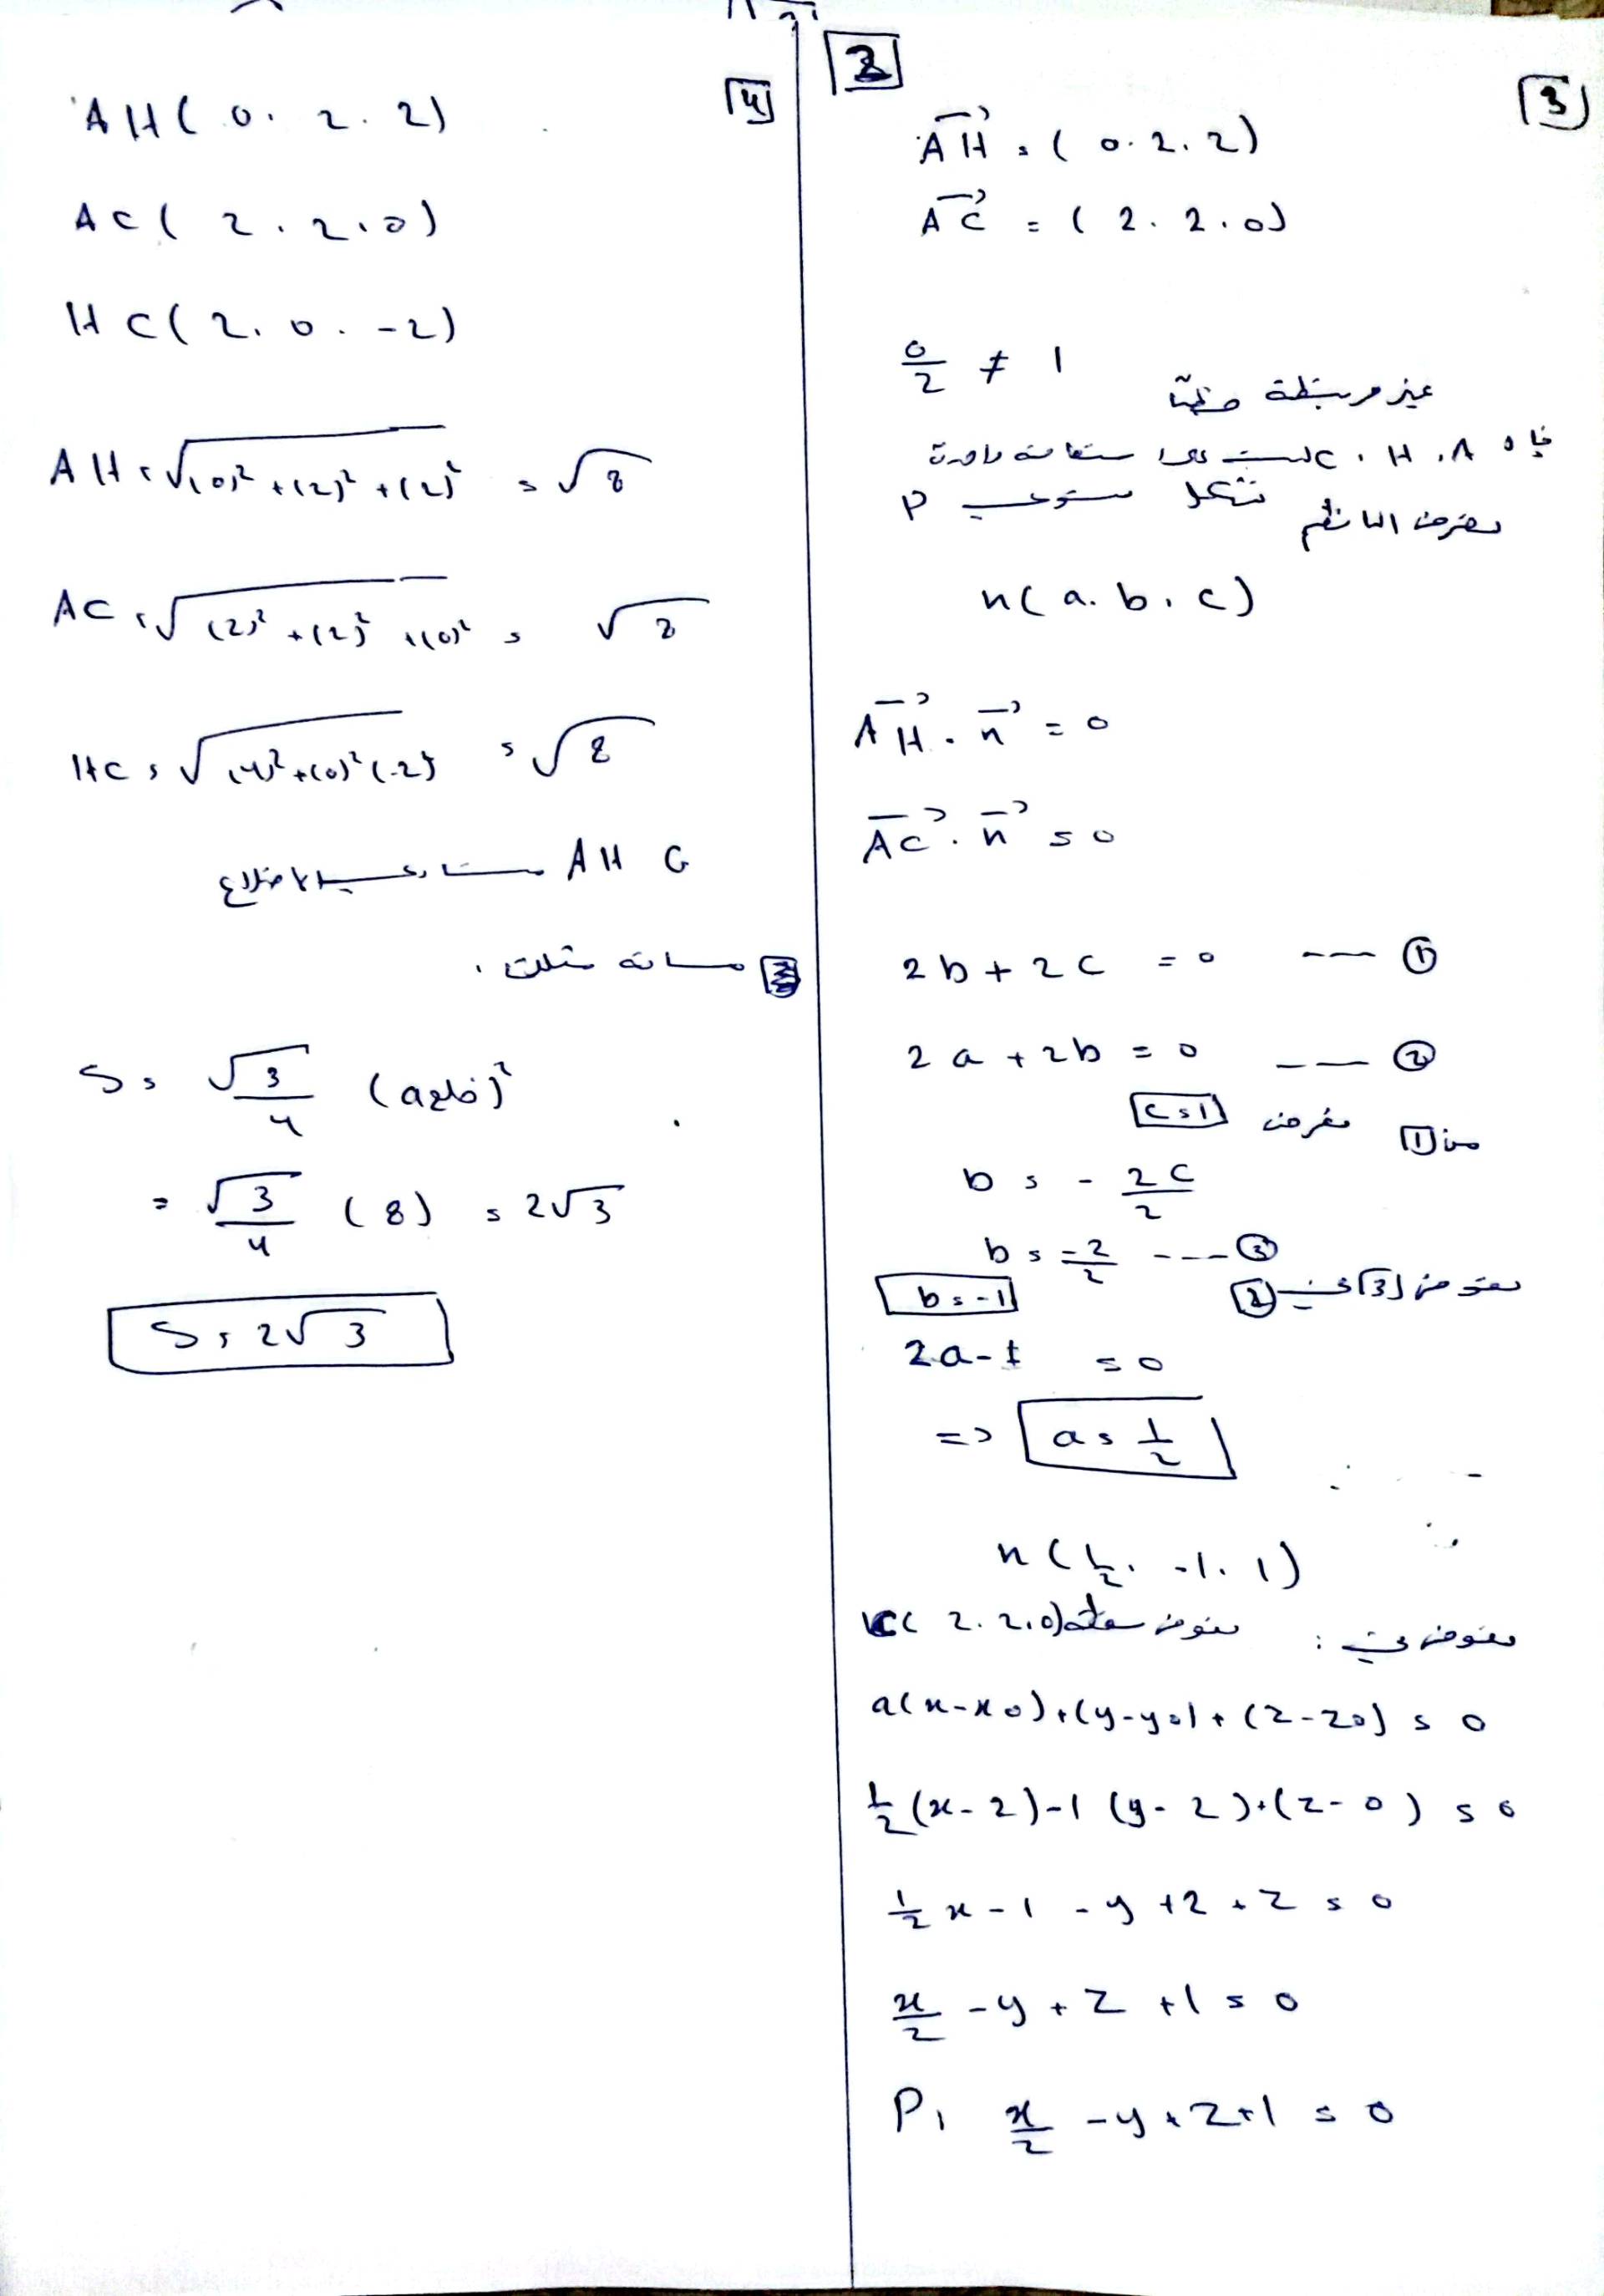 2
3
AH = (0. 2. 2)
AC = (2. 2. 0)
0/2 ≠ 1
غير مرتبطة خطياً
فإن A, H, C ليست على استقامة واحدة
تشكل مستوي P
نفرض الناظم
n(a. b. c)
AH . n = 0
AC . n = 0
2b + 2c = 0 --- ①
2a + 2b = 0 --- ②
من 1 نفرض c = 1
b = - 2c/2
b = -2/2 --- ③
b = -1
نعوض 3 في 2
2a - 1 = 0
=> a = 1/2
n(1/2. -1. 1)
نعوض في : نعوض نقطة C(2. 2. 0)
a(x-x0)+(y-y0)+(z-z0) = 0
1/2(x-2)-1(y-2)+(z-0) = 0
1/2 x - 1 - y + 2 + z = 0
x/2 - y + z + 1 = 0
P: x/2 - y + z + 1 = 0
4
AH(0. 2. 2)
AC(2. 2. 0)
HC(2. 0. -2)
AH = √(0)² + (2)² + (2)² = √8
AC = √(2)² + (2)² + (0)² = √8
HC = √(4)² + (0)² (-2)² = √8
AHC متساوي الاضلاع
3 مساحة مثلث
S = √3/4 (ضلعه)²
= √3/4 (8) = 2√3
S = 2√3